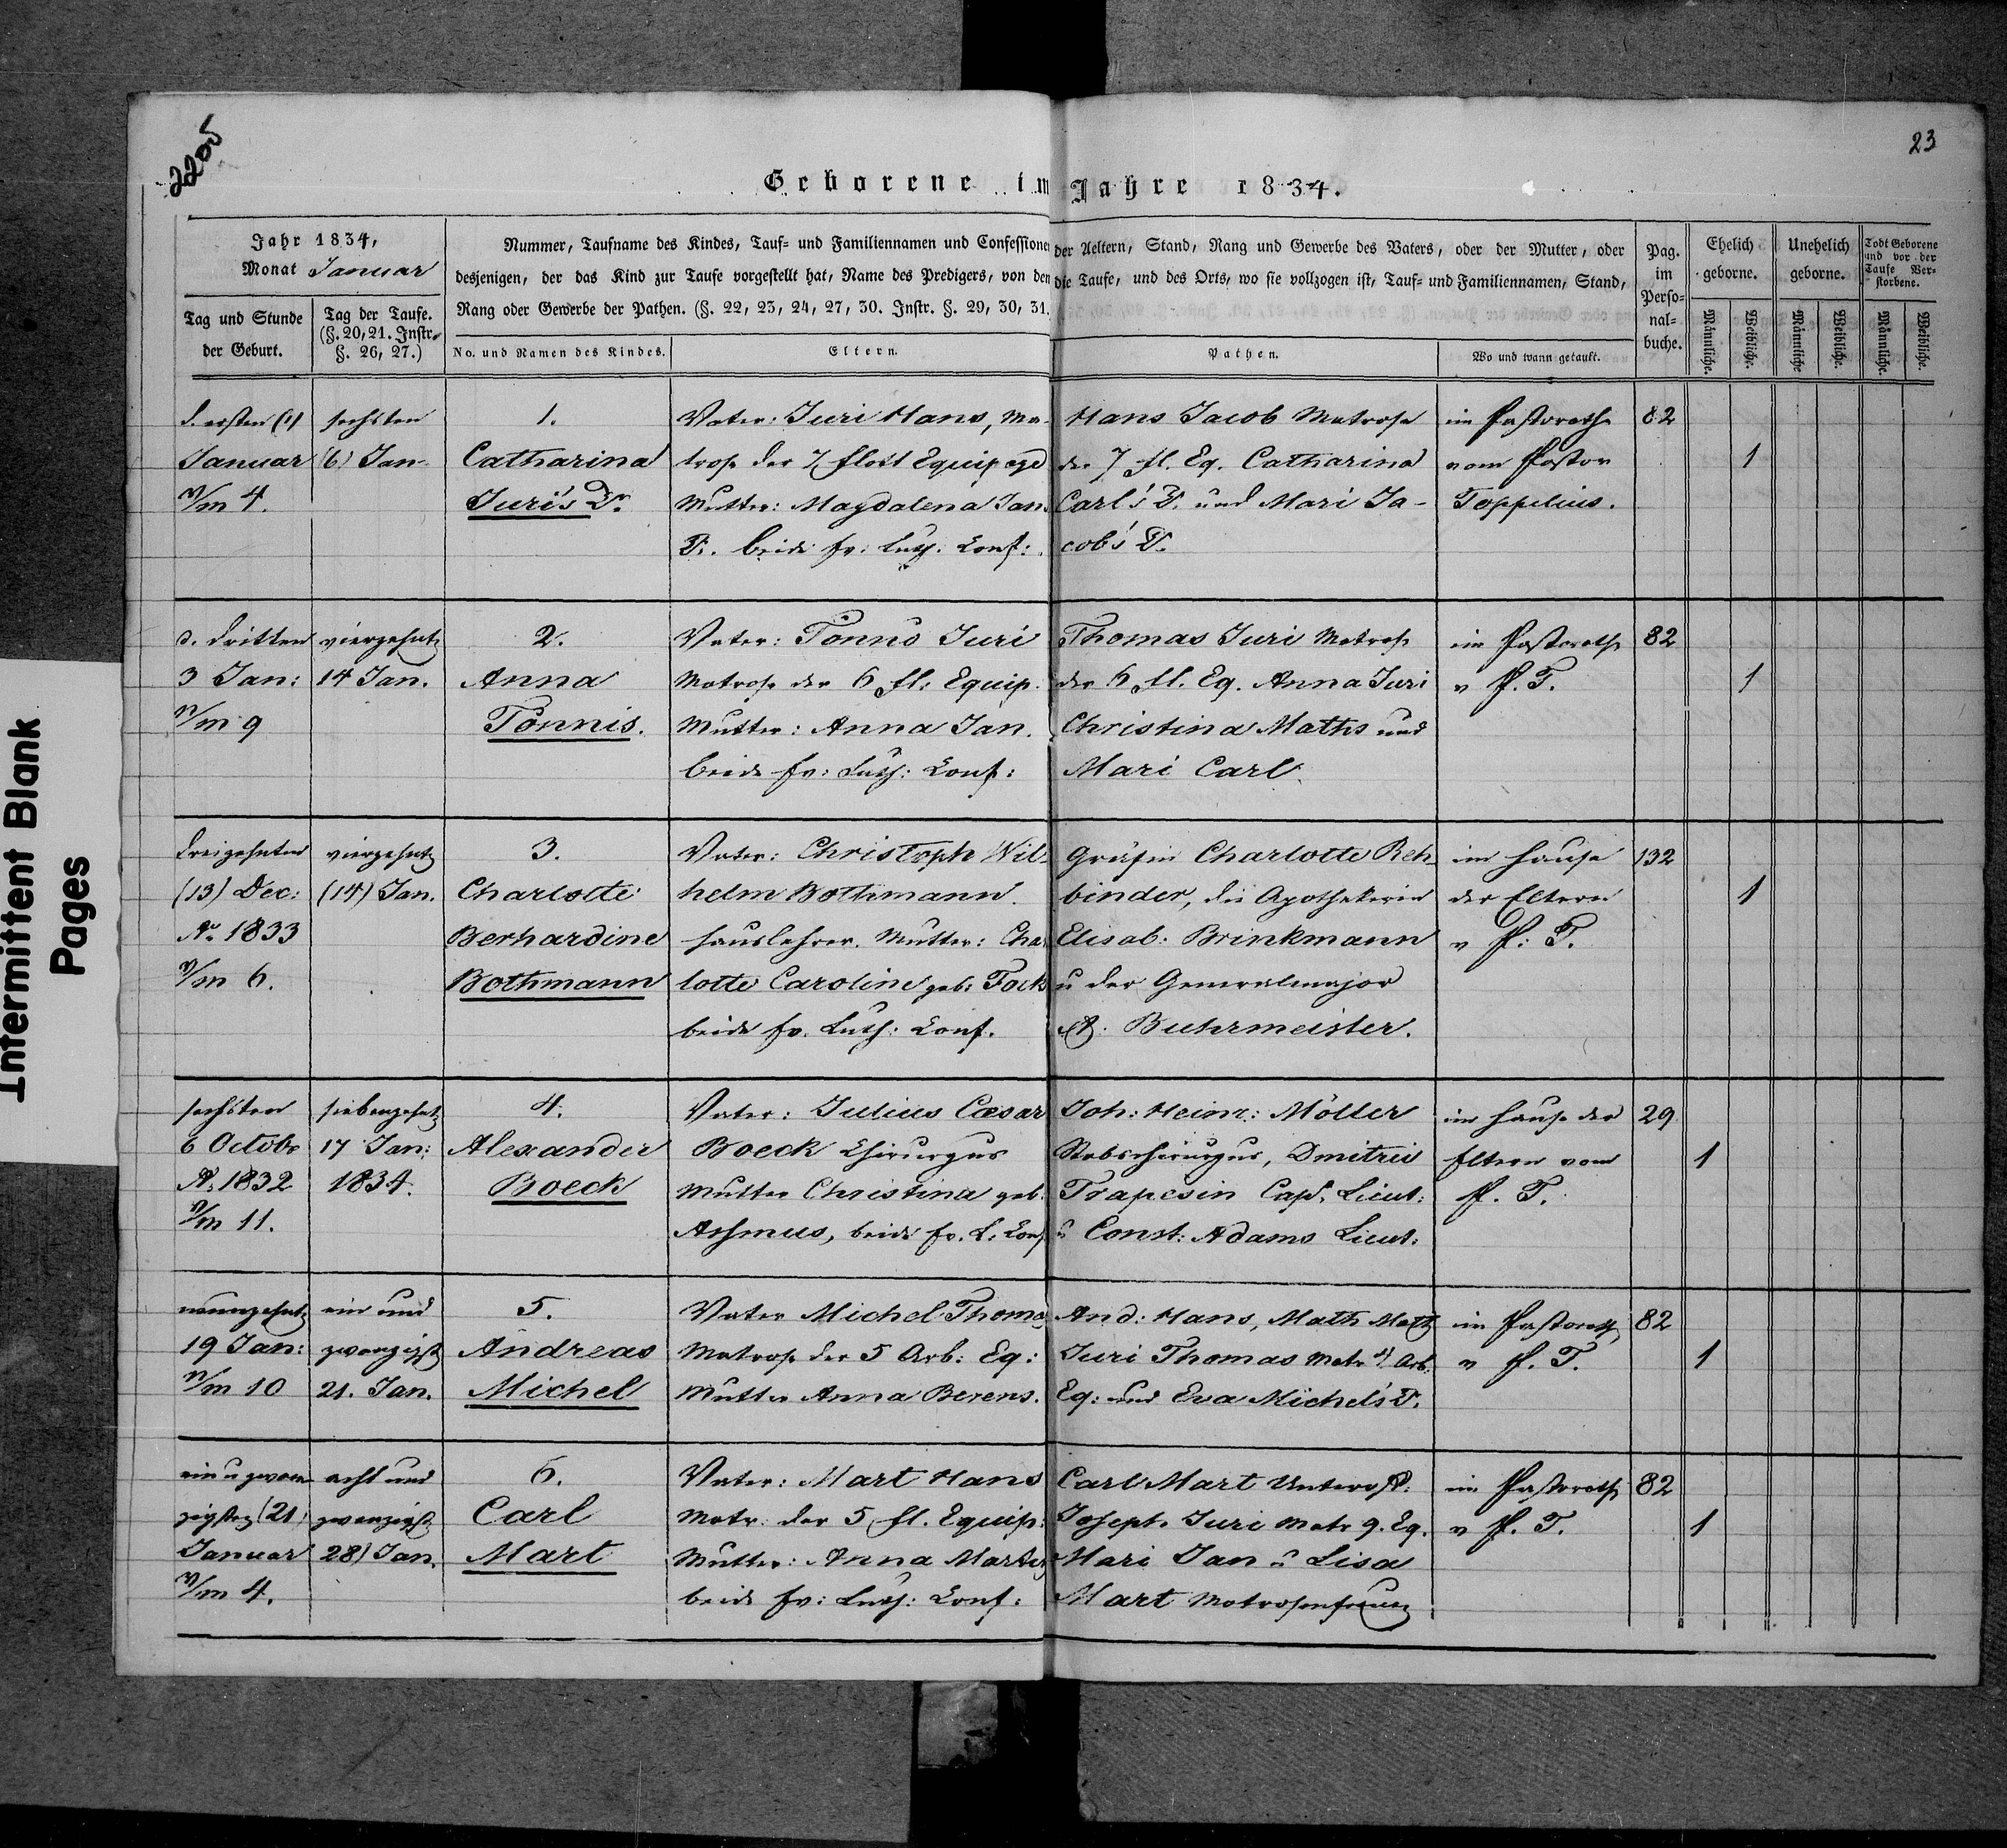 2205
23
Geborene im Jahre 1834.
Jahr 1834,
Monat Januar
Tag und Stunde der Geburt.
Tag der Taufe. (§. 20, 21. Instr. §. 26, 27.)
Nummer, Taufname des Kindes, Tauf- und Familiennamen und Confessionen der Aeltern, Stand, Rang und Gewerbe des Vaters, oder der Mutter, oder
desjenigen, der das Kind zur Taufe vorgestellt hat, Name des Predigers, von dem die Taufe, und des Orts, wo sie vollzogen ist, Tauf- und Familiennamen, Stand,
Rang oder Gewerbe der Pathen. (§. 22, 23, 24, 27, 30. Instr. §. 29, 30, 31.
No. und Namen des Kindes.
Eltern.
Pathen.
Wo und wann getauft.
Pag. im Perso-nal-buche.
Ehelich geborne.
Unehelich geborne.
Todt Geborene und vor der Taufe Ver-storbene.
Männliche.
Weibliche.
Männliche
Weibliche.
Männliche.
Weibliche.
d. ersten (1)
Januar
4.
sechsten
(6) Jan
1.
Catharina
Juri's D.
Vater: Juri Hans, Ma-
trose der 7 flott Equipage
Mutter: Magdalena Jans
D. beide ev: Luth. Conf:
Hans Jacob Matrose
der 7 fl. Eq. Catharina
Carl's D. und Mari Ja-
cob's D.
im Pastorathe
vom Pastor
Toppelius.
82
1
d. dritten
3 Jan:
n/m 9
vierzehnt
14 Jan.
2.
Anna
Tönnis.
Vater: Tönno Juri
Matrose der 6 fl: Equip.
Mutter: Anna Jan.
beide ev: Luth: Conf:
Thomas Juri Matrose
der 6 fl. Eq. Anna Juri
Christina Maths und
Mari Carl.
im Pastorathe
v P. T.
82
1
dreizehnten
(13) Dec:
Ao 1833
6.
vierzehnt
(14) Jan.
3.
Charlotte
Berhardine
Bothmann
Vater: Christoph Wil-
helm Bothmann.
Hauslehrer. Mutter: Cha
lotte Caroline geb: Fock
beide ev. Luth: Conf.
Gräfin Charlotte Reh
binder, die Apothekerin
Elisab: Brinkmann
u der Generalmajor
Buhrmeister.
im Hause
der Eltern
v P: T.
132
1
sechsten
6 Octobr
A. 1832
n/m 11.
siebenzehnt
17 Jan:
1834.
4.
Alexander
Boeck
Vater: Julius Cæsar
Boeck Chirurgus
Mutter Christina geb.
Asmus, beide ev. L. Conf
Joh: Heinr: Möller
Stabschirurgus, Dmitrii
Trapesin Cap. Lieut:
u Const: Adams Lieut:
im Hause der
Eltern vom
P. T.
29
1
neunzehnt
19 Jan:
n/m 10
ein und
zwanzigst
21. Jan.
5.
Andreas
Michel
Vater Michel Thomas
Matrose der 5 Arb: Eq:
Mutter Anna Berens.
And: Hans, Math Matz
Juri Thomas Matr Arb:
Eq: und Eva Michels D.
im Pastorath
v P. T.
82
1
ein u zwan
zigsten (21)
Januar
4.
acht und
zwanzigst
28) Jan.
6.
Carl
Mart
Vater: Mart Hans
Matr. der 5 fl. Equip:
Mutter: Anna
beide ev: Luth: Conf:
Carl Mart Unteroff:
Joseph Juri Matr 9. Eq.
Mari Jan u Lisa
Mart Matrosenfrauen
im Pastorath
v P. T.
82
1
Intermittent Blank
Pages